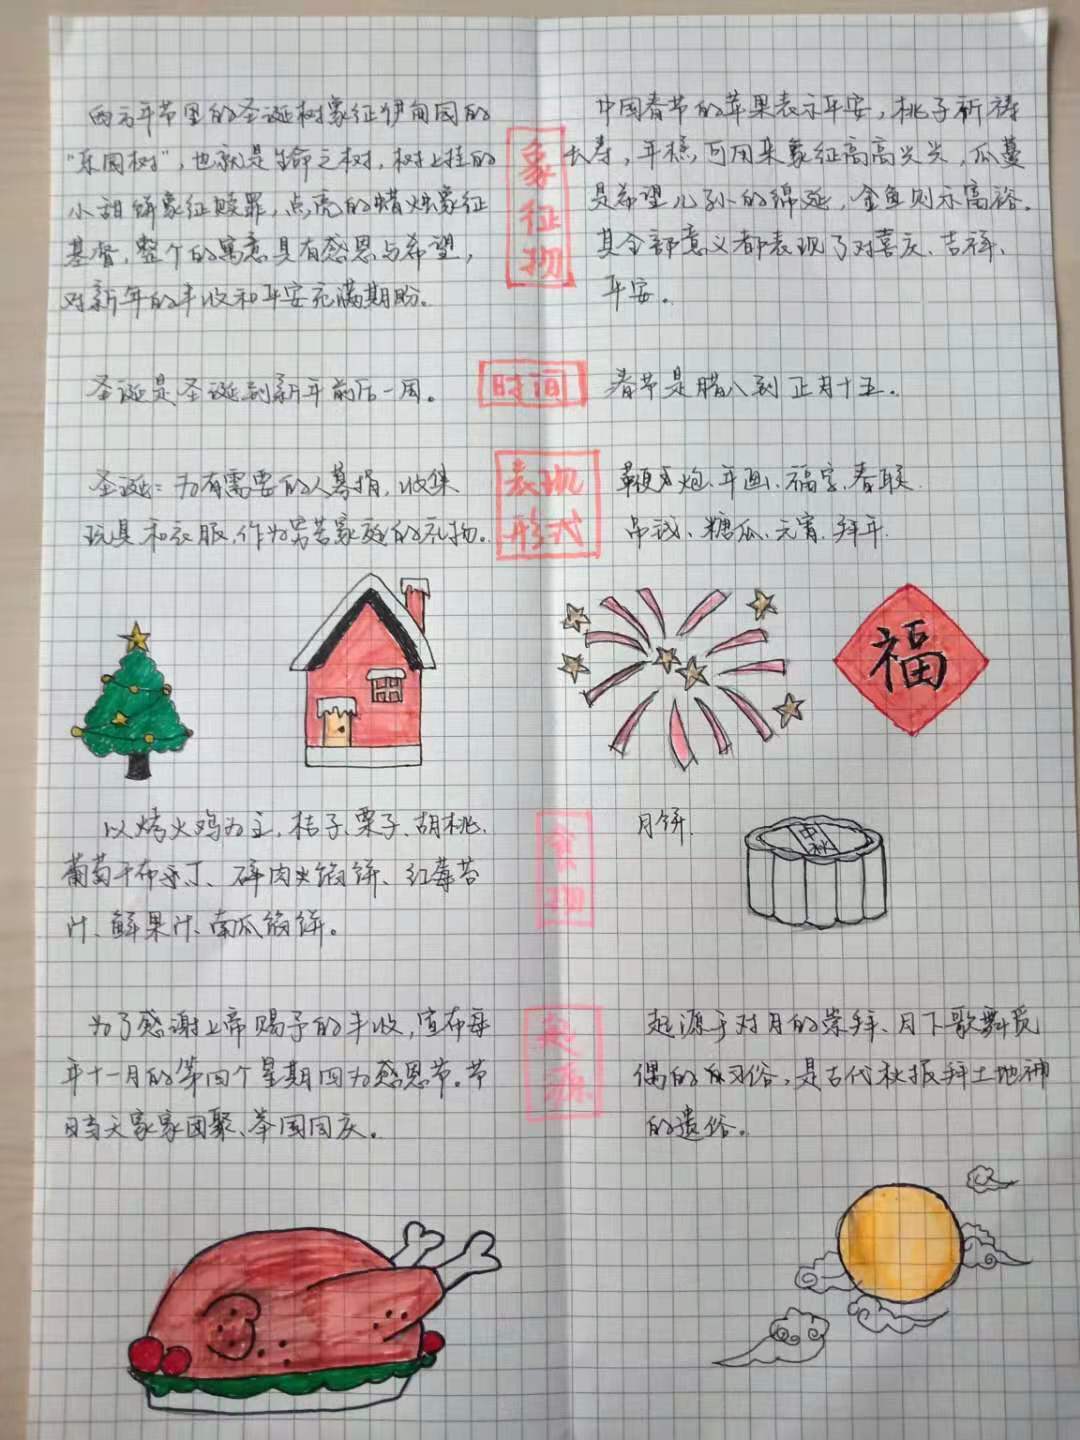 西方年节里的圣诞树象征伊甸园的
"乐园树",也就是生命之树,树上挂的
小甜饼象征赎罪,点亮的蜡烛象征
基督,整个的寓意具有感恩与希望,
对新年的丰收和平安充满期盼。
象征物
中国春节的苹果表示平安,桃子祈祷
长寿,年糕,可用来象征高高兴兴,瓜蔓
是希望儿孙的绵延,金鱼则示富裕.
其全部意义都表现了对喜庆、吉祥、
平安。
圣诞是圣诞到新年前后一周。
时间
春节是腊八到正月十五。
圣诞:为有需要的人募捐,收集
玩具和衣服,作为穷苦家庭的礼物。
表现
形式
鞭炮、年画、福字、春联
吊钱、糖瓜、元宵、拜年
福
以烤火鸡为主,桔子、栗子、胡桃、
葡萄干布丁、碎肉火馅饼、红莓苔
汁、鲜果汁、南瓜馅饼。
食物
月饼.
中秋
为了感谢上帝赐予的丰收,宣布每
年十一月的第四个星期四为感恩节。节
日当天家家团聚、举国同庆。
起源
起源于对月的崇拜、月下歌舞觅
偶的习俗,是古代秋报拜土地神
的遗俗。